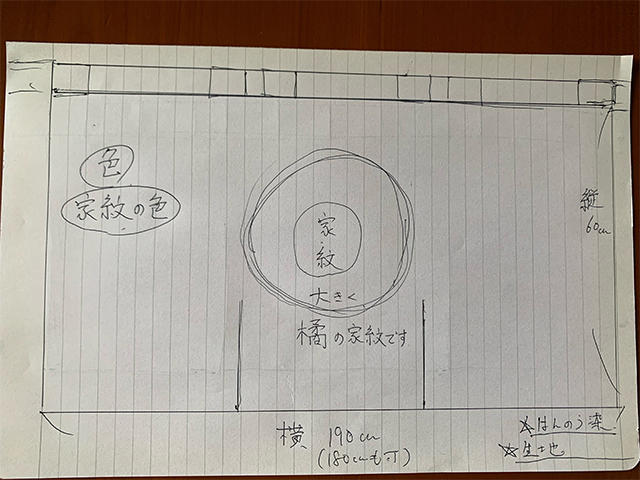 色
家紋の色
家
紋
大きく
橘の家紋です
縦
60cm
横 190cm
(180cmも可)
☆はんのう染
☆生地